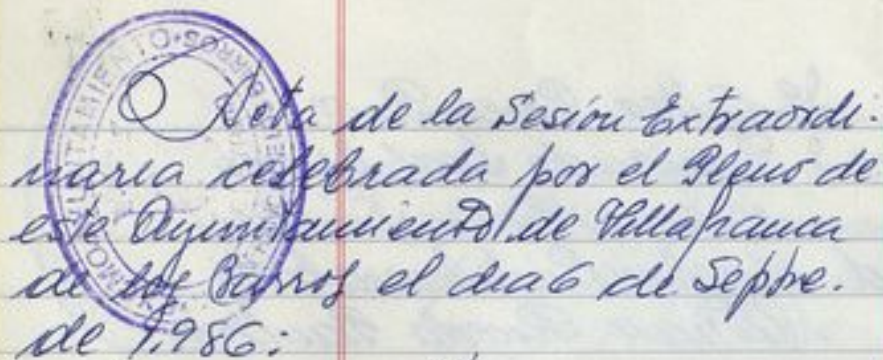 Acta de la Sesión Extraordi-
naria celebrada por el Pleno de
este Ayuntamiento de Villafranca
de los Barros el dia 6 de Septbre.
de 1.986: